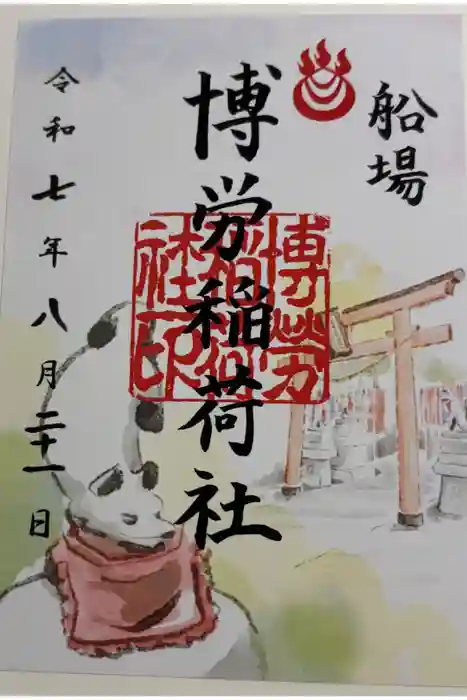 船場
博労稲荷社
博労稲荷社印
令和七年八月二十一日